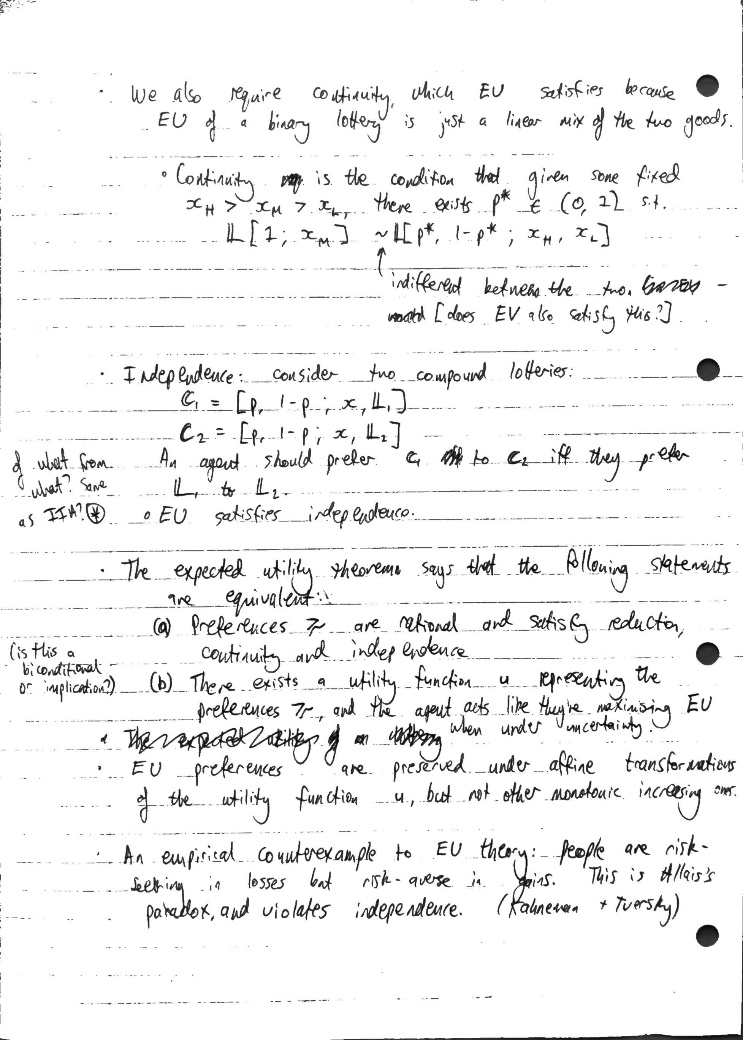 · We also require continuity, which EU satisfies because
EU of a binary lottery is just a linear mix of the two goods.
◦ Continuity is the condition that given some fixed
x_H > x_M > x_L, there exists p* ∈ (0, 1) s.t.
𝕃[1; x_M] ~ 𝕃[p*, 1-p*; x_H, x_L]
indifferent between the two.
[does EV also satisfy this?]
· Independence: consider two compound lotteries:
C₁ = [p, 1-p; x, 𝕃₁]
C₂ = [p, 1-p; x, 𝕃₂]
of what from
what? Same
as IIA? ⊛
An agent should prefer C₁ to C₂ iff they prefer
𝕃₁ to 𝕃₂.
◦ EU satisfies independence.
· The expected utility theorem says that the following statements
are equivalent:
(a) Preferences ≿ are rational and satisfy reduction,
continuity and independence
(is this a
biconditional
or implication?)
(b) There exists a utility function u representing the
preferences ≿, and the agent acts like they're maximising EU
when under uncertainty.
· EU preferences are preserved under affine transformations
of the utility function u, but not other monotonic increasing ones.
· An empirical counterexample to EU theory: people are risk-
seeking in losses but risk-averse in gains. This is Allais's
paradox, and violates independence. (Kahneman + Tversky)